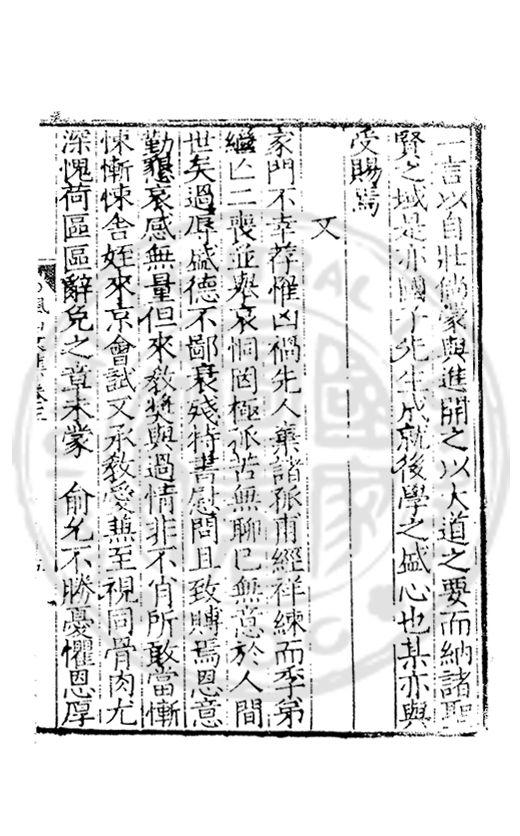 一言以自壯倘蒙與進開之以大道之要而納諸聖
賢之域是亦國子先生成就後學之盛心也某亦與
受賜焉
又
家門不幸荐惟凶禍先人棄諸孤甫經祥練而季弟
繼亡二喪並舉哀恫罔極孤苦無聊已無意於人間
世矣過辱盛德不鄙衰殘特書慰問且致賻焉恩意
勤懇哀感無量但來教獎與過情非不肖所敢當慚
悚慚悚舍姪來京會試又承教愛無至視同骨肉尤
深愧荷區區辭免之章未蒙 俞允不勝憂懼恩厚